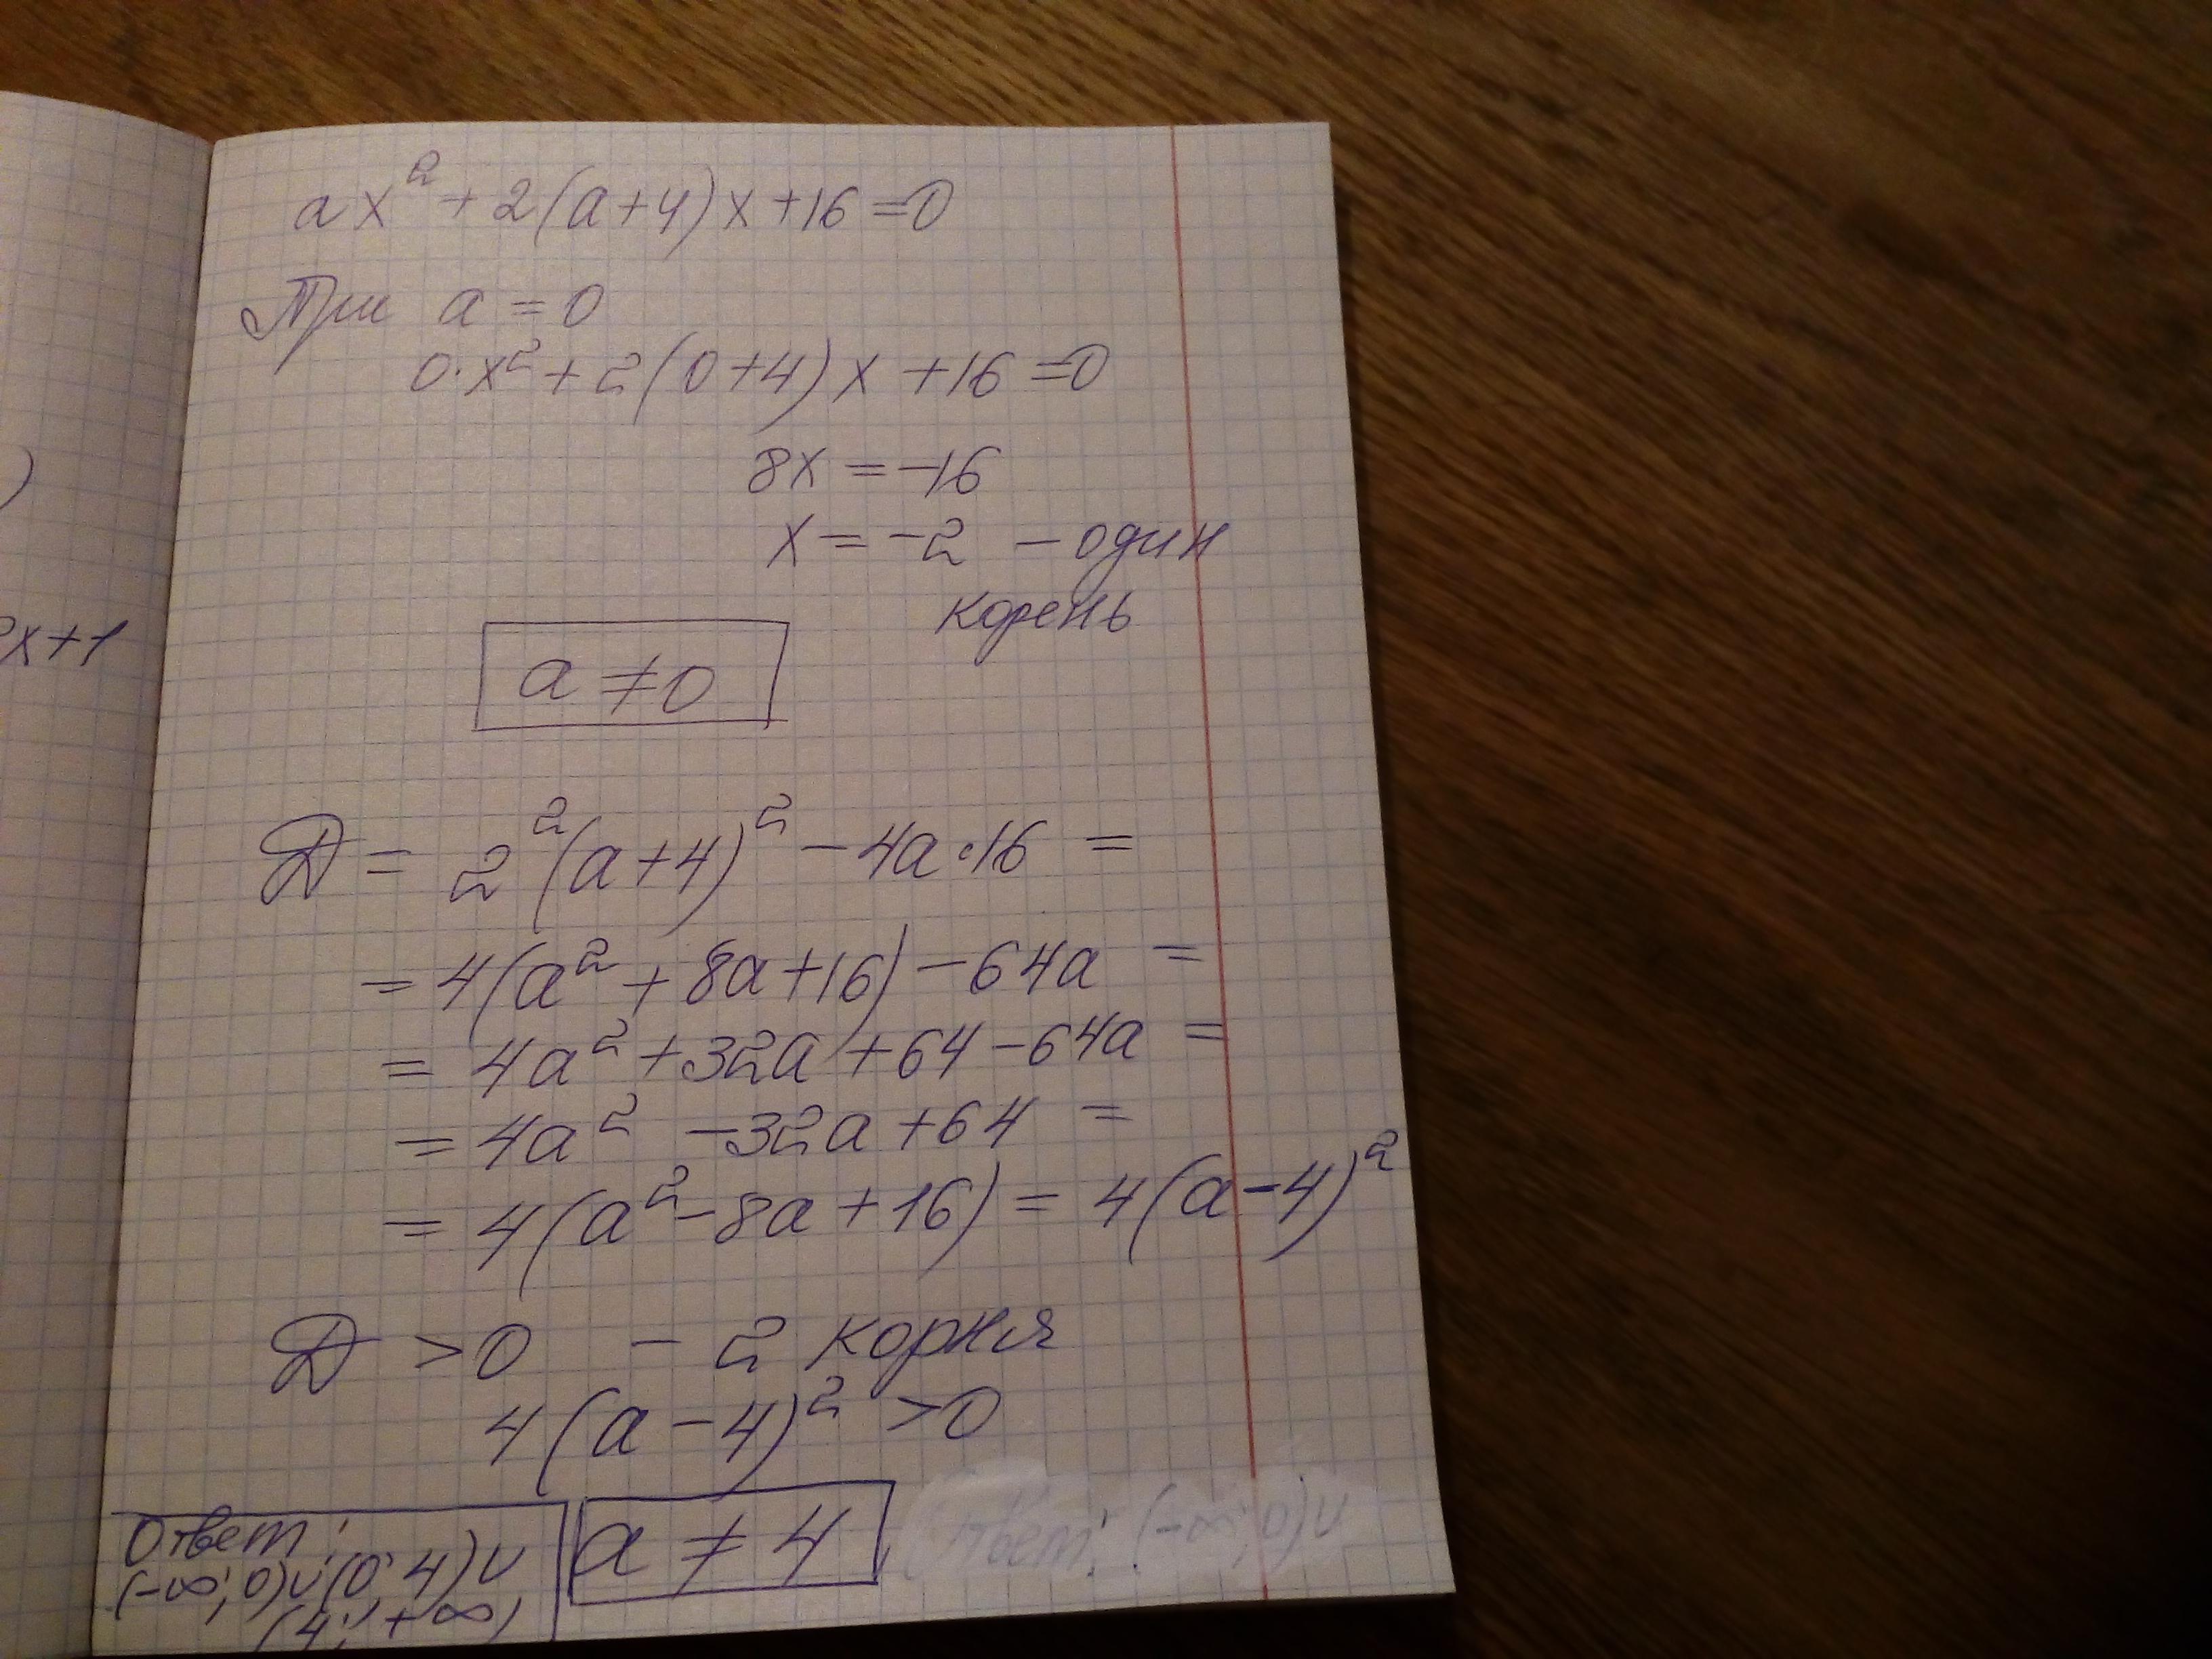 )
2x+1
ax² + 2(a+4)x+16=0
При a = 0
0·x² + 2(0+4)x +16=0
8x = -16
x = -2 - один
корень
a ≠ 0
D = 2²(a+4)² - 4a·16 =
= 4(a² + 8a+16) - 64a =
= 4a² + 32a + 64 - 64a =
= 4a² - 32a + 64 =
= 4(a² - 8a + 16) = 4(a-4)²
D > 0 - 2 корня
4(a-4)² > 0
a ≠ 4
Ответ: (-∞; 0)∪
Ответ:
(-∞; 0)∪(0; 4)∪
(4; +∞)